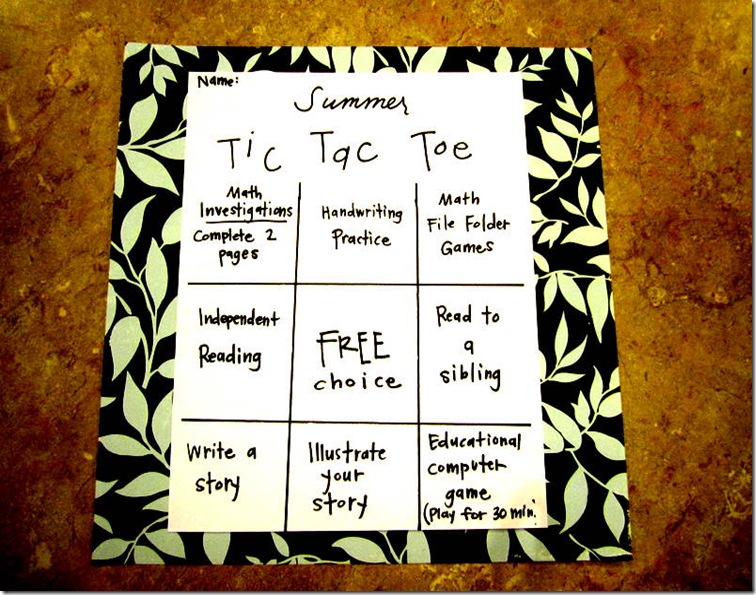 Name:
Summer
Tic Tac Toe
Math
Investigations
Complete 2
pages
Handwriting
Practice
Math
File Folder
Games
Independent
Reading
FREE
choice
Read to
a
sibling
Write a
story
Illustrate
your
story
Educational
computer
game
(Play for 30 min.)